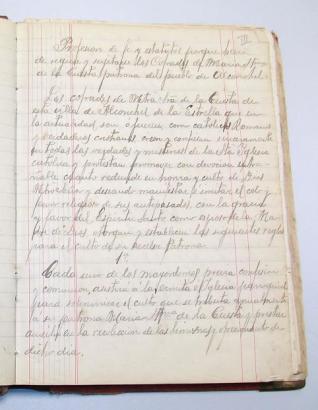 III
Profesion de fe y estatutos porque han
de regirse y sujetarse los Cofrades de Maria Stma
de la Cuesta patrona del pueblo de Alconchel.
Los cofrades de Ntra Sra de la Cuesta de
esta villa de Alconchel de la Estrella que en
la actualidad son ó fueren como católicos Romanos
y verdaderos cristianos creen y confiesan sinceramente
en todas las verdades y misterios de la Sta Iglesia
católica y protestan promover con devocion entra-
ñable cuanto redunde en honra y culto de Dios
y deseando manifestar é imitar el celo y
fervor religioso de sus antepasados con la gracia
y favor del Espiritu Santo como esposo de la Ma-
dre de Dios otorgan y establecen las siguientes reglas
para el culto de su Patrona.
1ª
Cada uno de los mayordomos previa confesion
y comunion, asistirá á la ermita é Iglesia parroquial
para solemnizar el culto que se tributa anualmente
á su patrona Maria Stma de la Cuesta y prestar
auxilio en la recoleccion de las limosnas y
dicho dia.